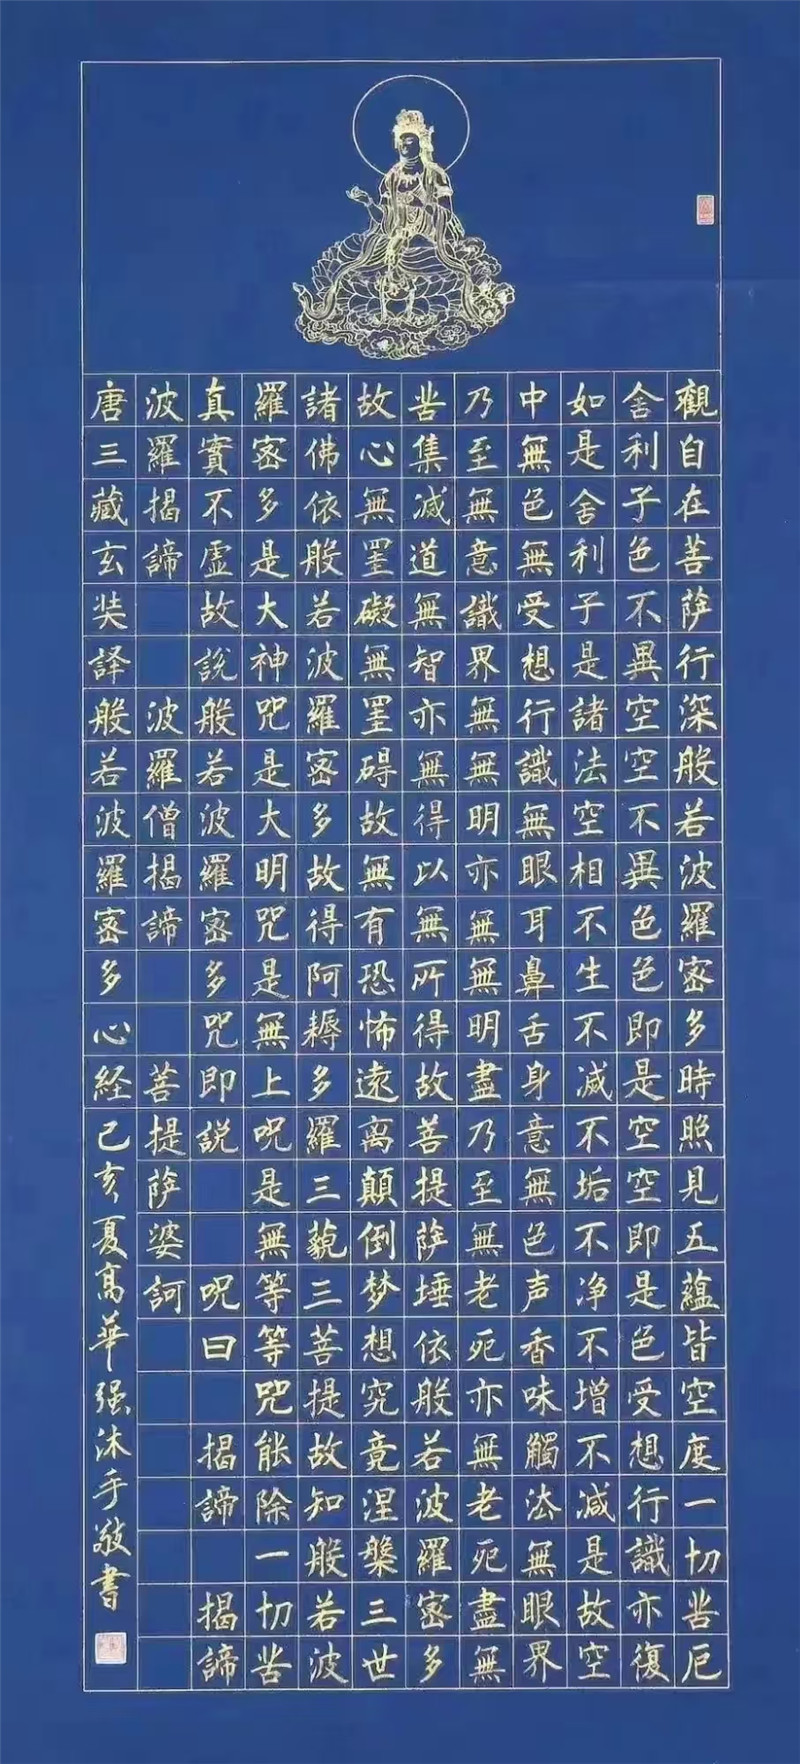 觀自在菩萨行深般若波羅密多時照見五蘊皆空度一切苦厄
舍利子色不異空空不異色色即是空空即是色受想行識亦復
如是舍利子是諸法空相不生不滅不垢不净不增不減是故空
中無色無受想行識無眼耳鼻舌身意無色声香味觸法無眼界
乃至無意識界無無明亦無無明盡乃至無老死亦無老死盡無
苦集滅道無智亦無得以無所得故菩提萨埵依般若波羅密多
故心無罣礙無罣碍故無有恐怖遠离顛倒梦想究竟涅槃三世
諸佛依般若波羅密多故得阿耨多羅三藐三菩提故知般若波
羅密多是大神咒是大明咒是無上呪是無等等咒能除一切苦
真實不虛故說般若波羅密多咒即説 呪曰 揭諦 揭諦
波羅揭諦 波羅僧揭諦 菩提萨婆訶
唐三藏玄奘譯般若波羅密多心経 己亥夏高華强沐手敬書